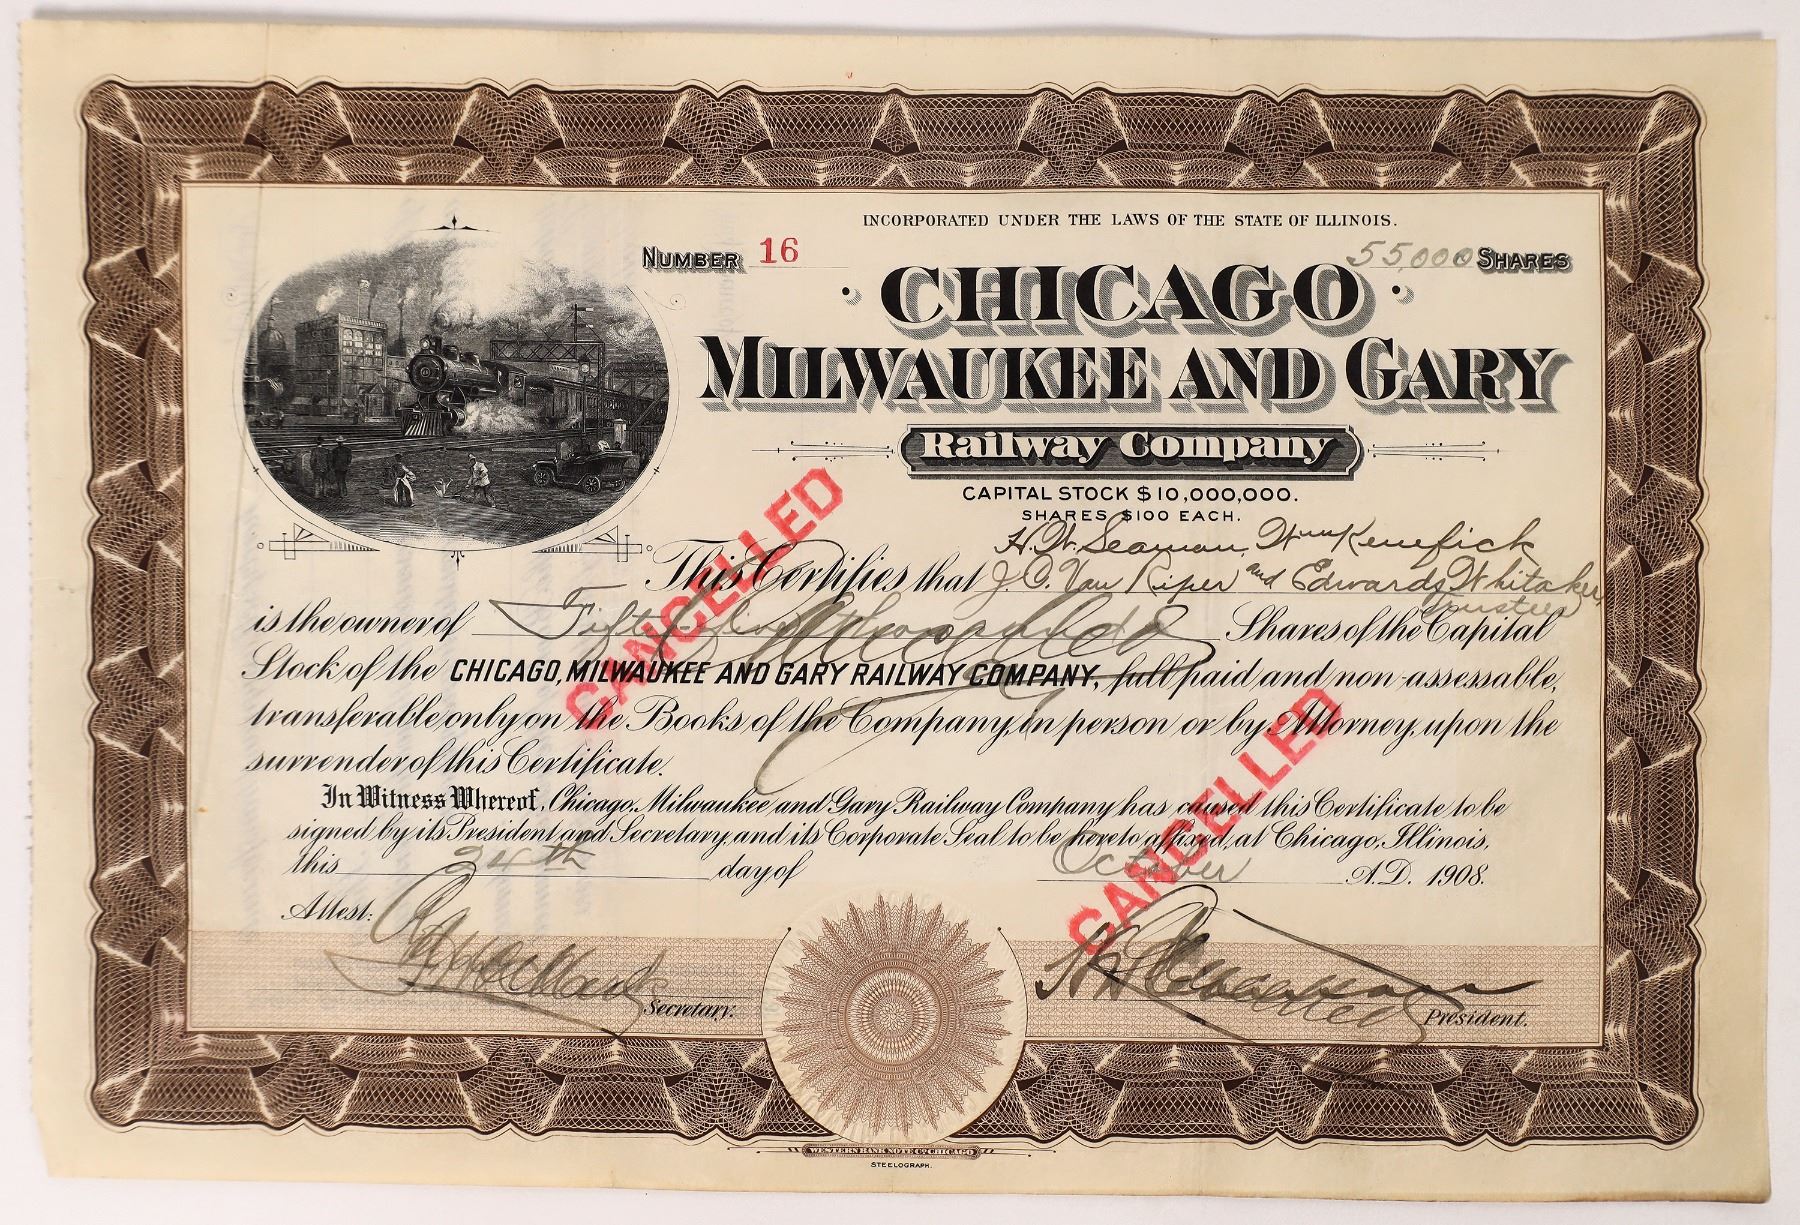 INCORPORATED UNDER THE LAWS OF THE STATE OF ILLINOIS.
NUMBER 16
55,000 SHARES
CHICAGO
MILWAUKEE AND GARY
Railway Company
CAPITAL STOCK $10,000,000.
SHARES $100 EACH.
H. W. Seaman, Wm Kenefick
This Certifies that J. C. Van Riper and Edwards Whitaker,
Trustees
is the owner of Fifty-five Thousand Shares of the Capital
Stock of the CHICAGO, MILWAUKEE AND GARY RAILWAY COMPANY, full paid and non-assessable,
transferable only on the Books of the Company, in person or by Attorney, upon the
surrender of this Certificate.
In Witness Whereof, Chicago, Milwaukee and Gary Railway Company has caused this Certificate to be
signed by its President and Secretary, and its Corporate Seal to be hereto affixed, at Chicago, Illinois,
this 24th day of October A.D. 1908.
Attest:
Secretary.
President.
CANCELLED
CANCELLED
WESTERN BANK NOTE CO. CHICAGO
STEELOGRAPH.